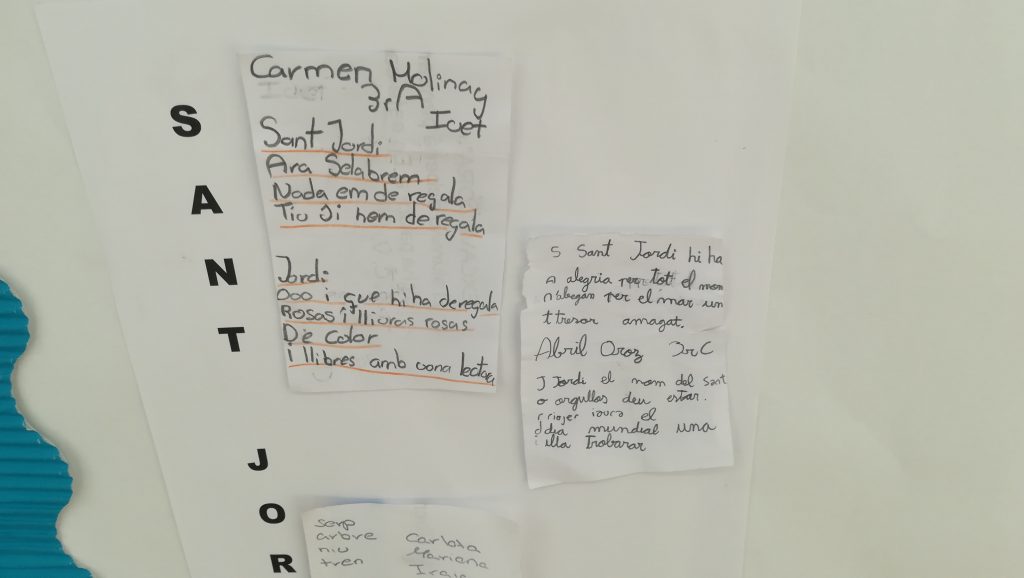 S
A
N
T
J
O
R
Carmen Molinay
3r A
Ivet
Sant Jordi
Ara Selabrem
Nada em de regala
Tiu Si hem de regala
Jordi
Ooo i que hi ha deregala
Rosas i llivras rosas
De color
i llibres amb vona
S Sant Jordi hi ha
A alegria tot el mon
per el mar un
t tresor amagat.
Abril Oroz 3r C
J Jordi el nom del sant
o orgullos deu estar.
el
d dia mundial una
illa trobarar
serp
arbre Carlota
niu Mariona
tren